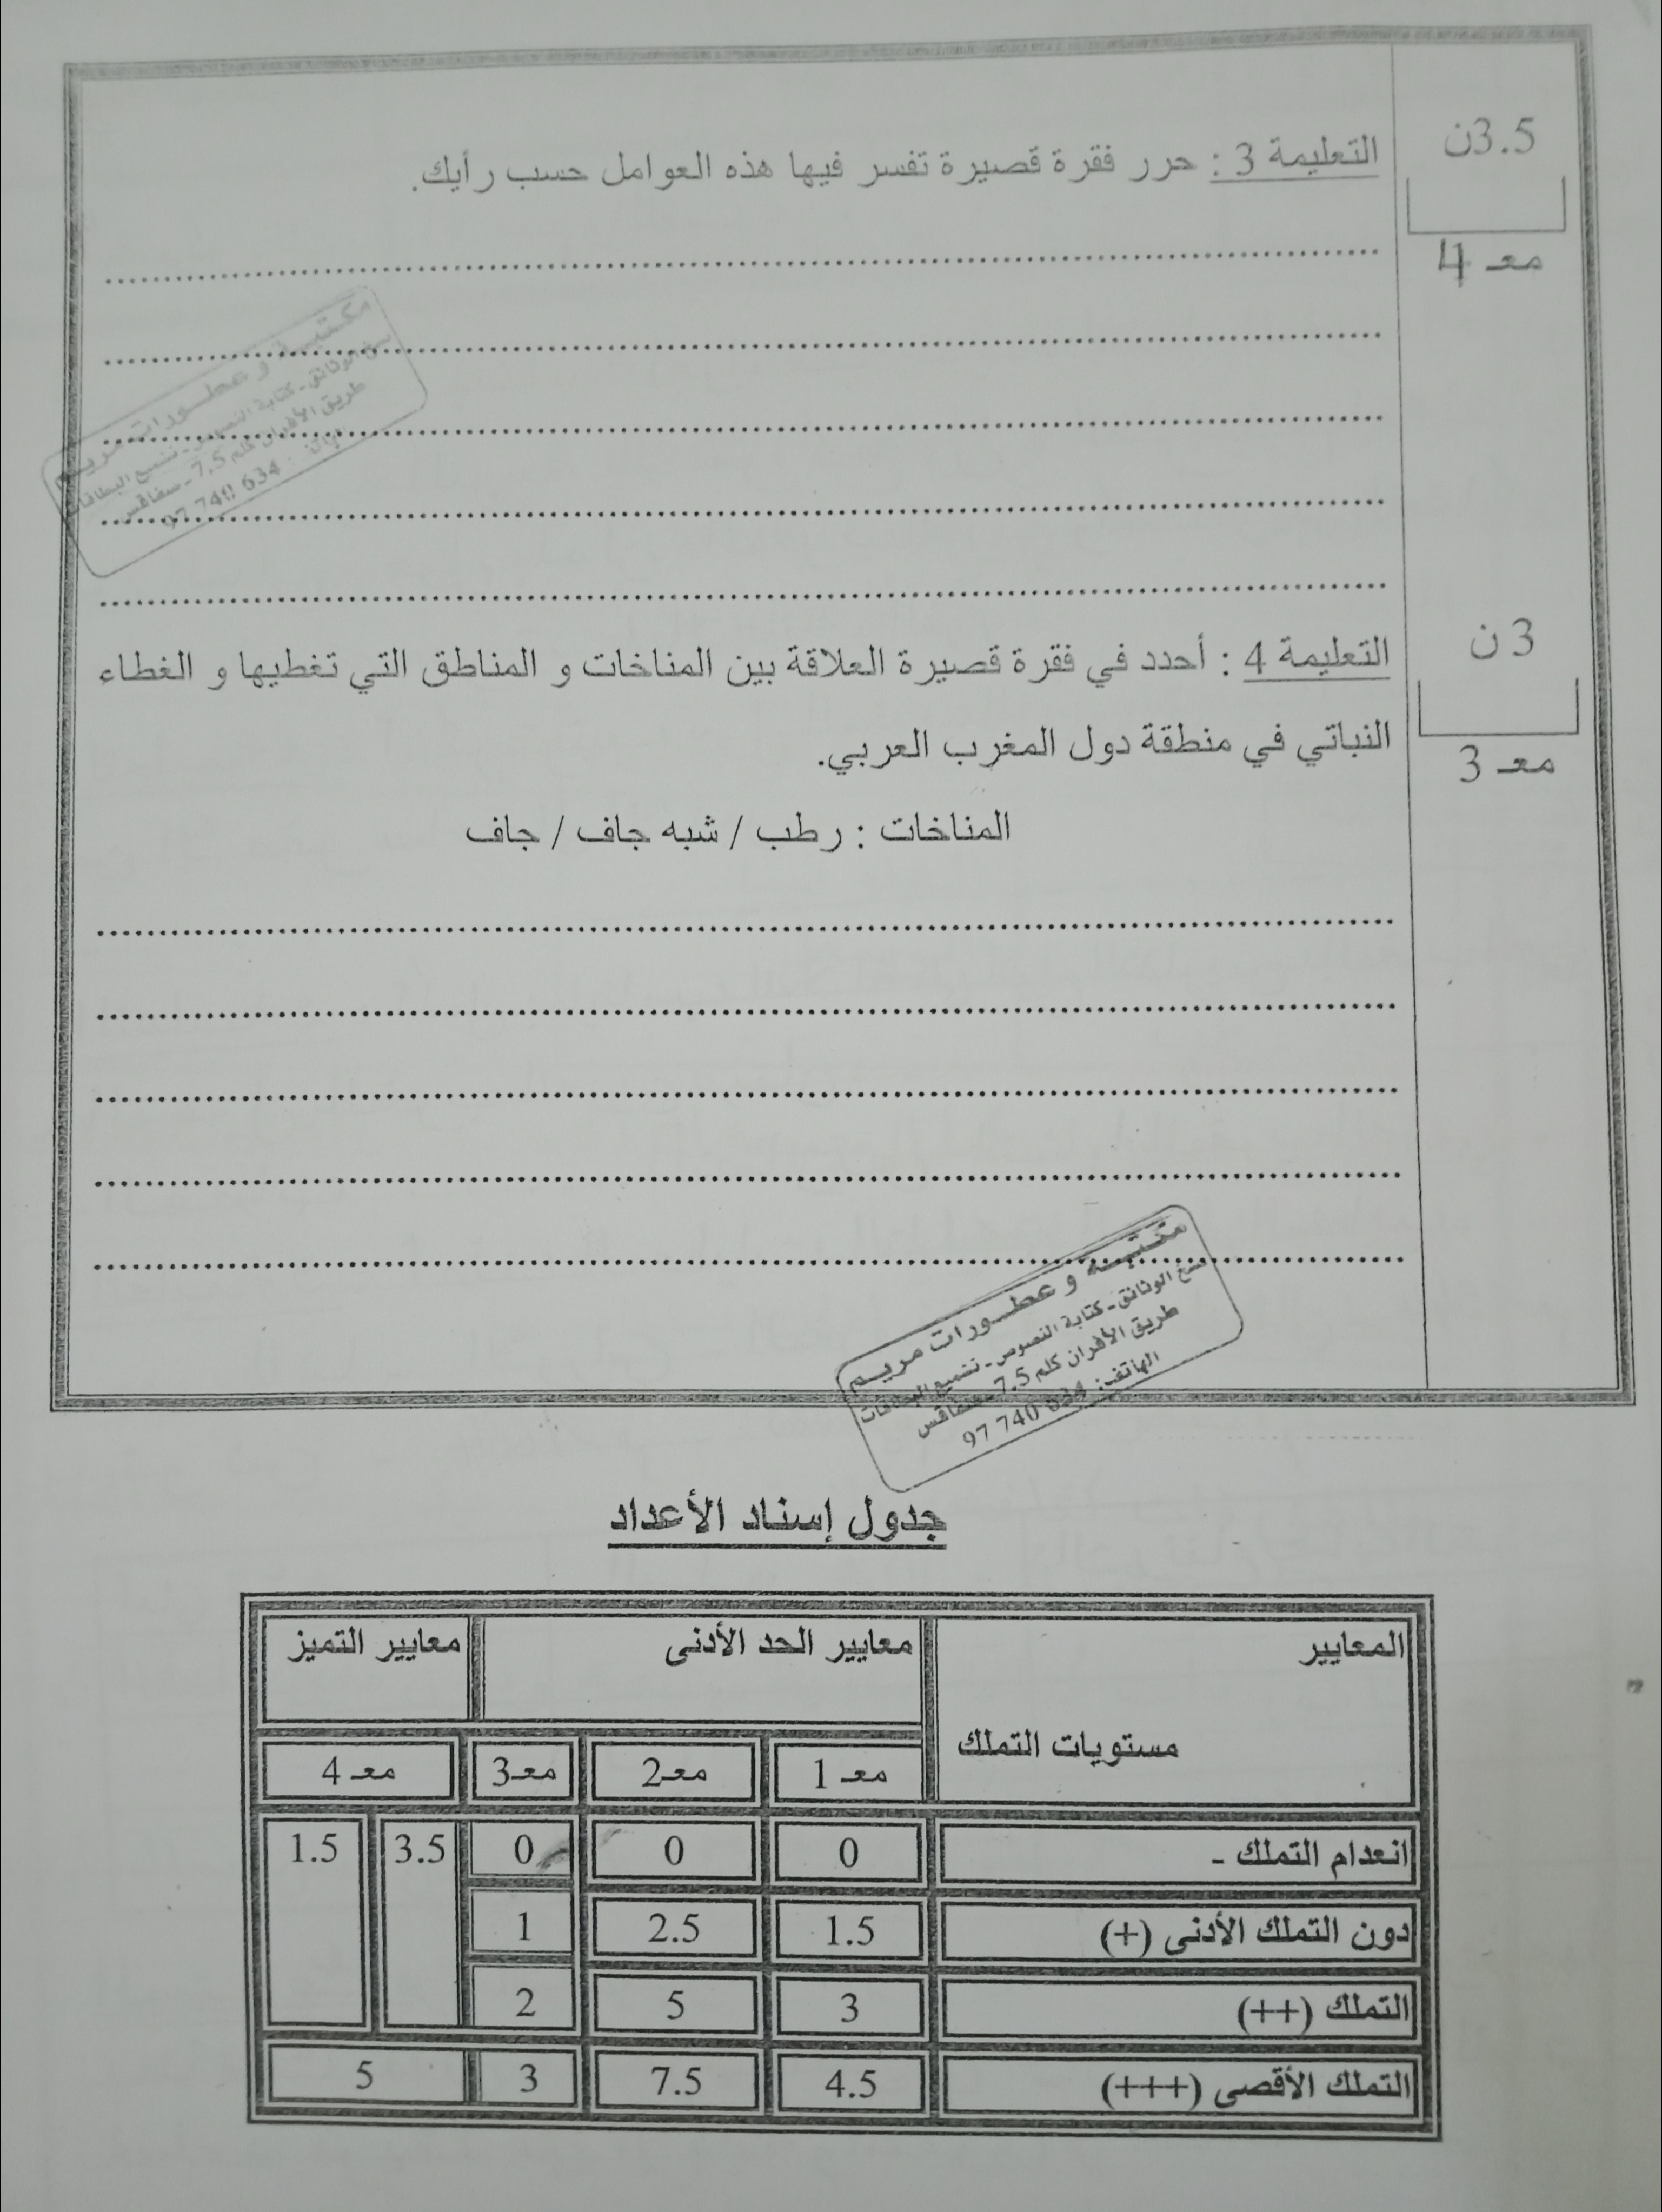 3.5ن
التعليمة 3 : حرر فقرة قصيرة تفسر فيها هذه العوامل حسب رأيك.
معـ 4
مكتبة و عطورات مريم
نسخ الوثائق - كتابة النصوص - تشميع البطاقات
طريق الأفران كلم 7.5 - صفاقس
الهاتف: 97 740 634
3 ن
التعليمة 4 : أحدد في فقرة قصيرة العلاقة بين المناخات و المناطق التي تغطيها و الغطاء
النباتي في منطقة دول المغرب العربي.
معـ 3
المناخات : رطب / شبه جاف / جاف
مكتبة و عطورات مريم
نسخ الوثائق - كتابة النصوص - تشميع البطاقات
طريق الأفران كلم 7.5 - صفاقس
الهاتف: 97 740 634
جدول إسناد الأعداد
المعايير معايير الحد الأدنى معايير التميز
مستويات التملك
معـ 1 معـ2 معـ3 معـ 4
انعدام التملك - 0 0 0 3.5 1.5
دون التملك الأدنى (+) 1.5 2.5 1
التملك (++) 3 5 2
التملك الأقصى (+++) 4.5 7.5 3 5